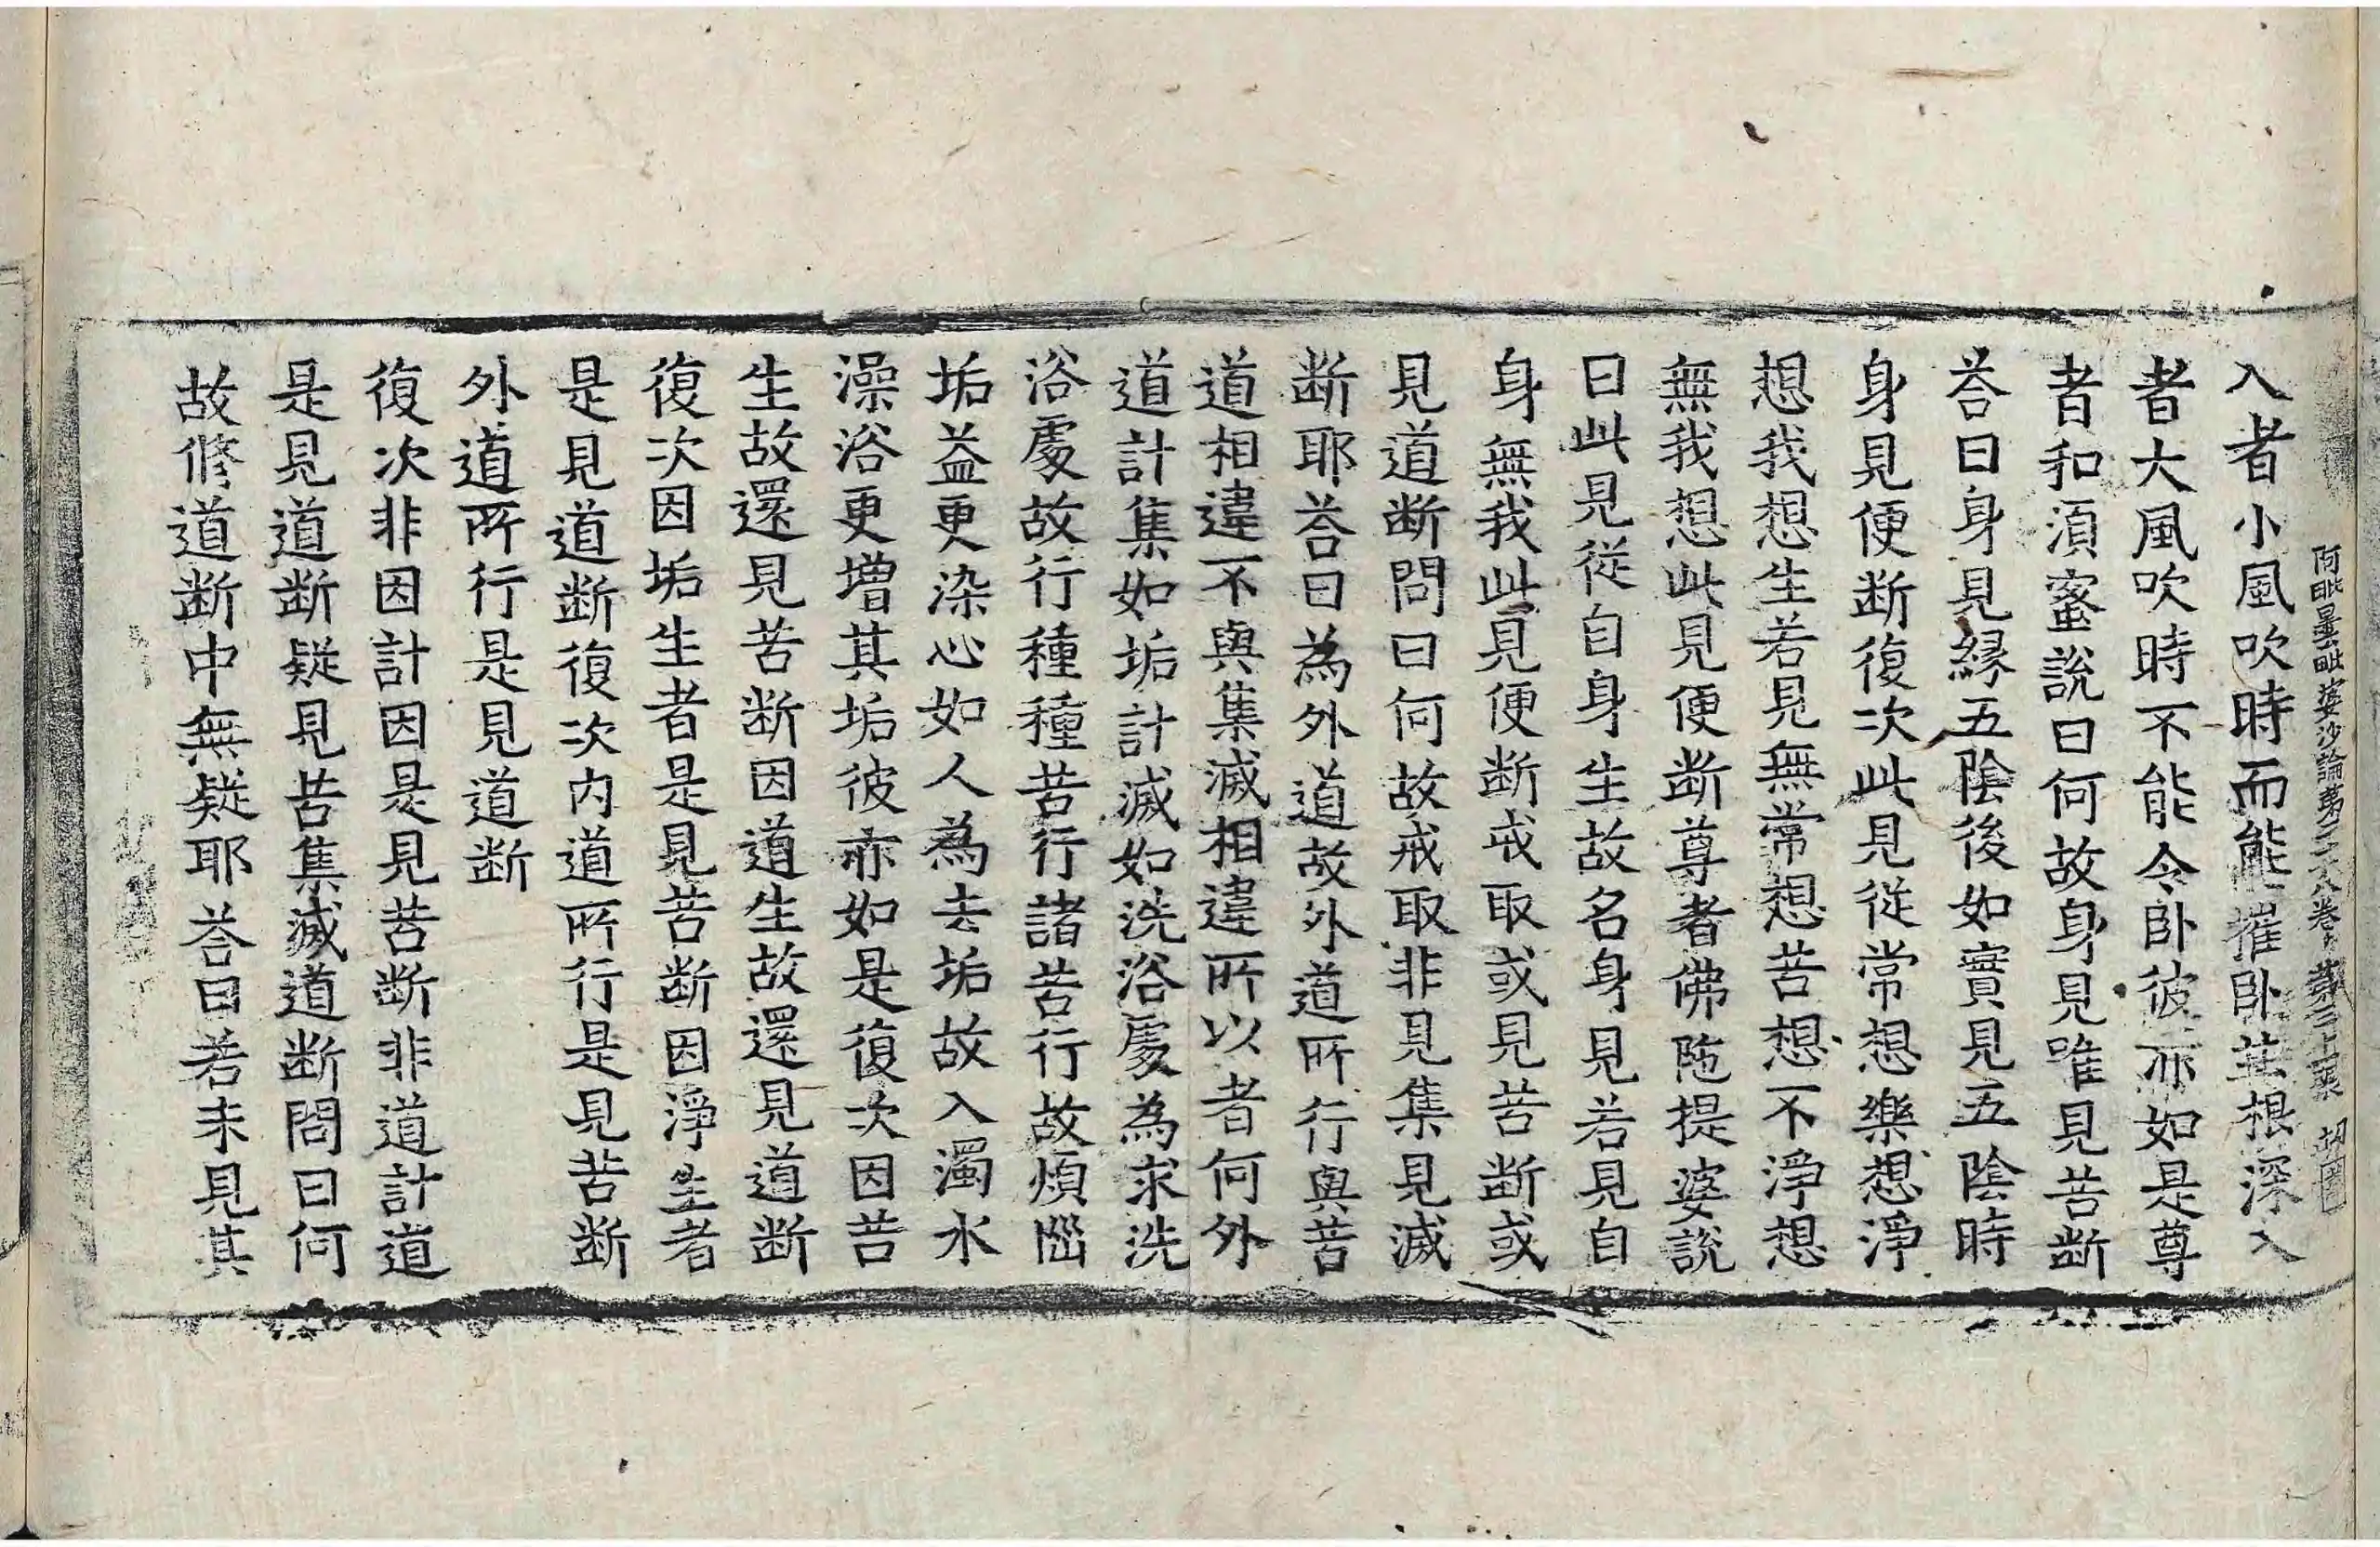 阿毗曇毗婆沙論第二十八卷 第三十張
入者小風吹時而能摧卧莖根深入
者大風吹時不能令卧彼亦如是尊
者和須蜜說曰何故身見唯見苦断
荅曰身見縁五陰後如實見五陰時
身見便断復次此見從常想樂想淨
想我想生若見無常想苦想不淨想
無我想此見便断尊者佛陁提婆說
曰此見從自身生故名身見若見自
身無我此見便断戒取或見苦断或
見道断問曰何故戒取非見集見滅
断耶荅曰為外道故外道所行與苦
道相違不與集滅相違所以者何外
道計集如垢計滅如洗浴處為求洗
浴處故行種種苦行諸苦行故煩惱
垢益更染心如人為去垢故入濁水
澡浴更增其垢彼亦如是復次因苦
生故還見苦断因道生故還見道断
復次因垢生者是見苦断因淨生者
是見道断復次内道所行是見苦断
外道所行是見道断
復次非因計因是見苦断非道計道
是見道断疑見苦集滅道断問曰何
故修道断中無疑耶荅曰若未見其